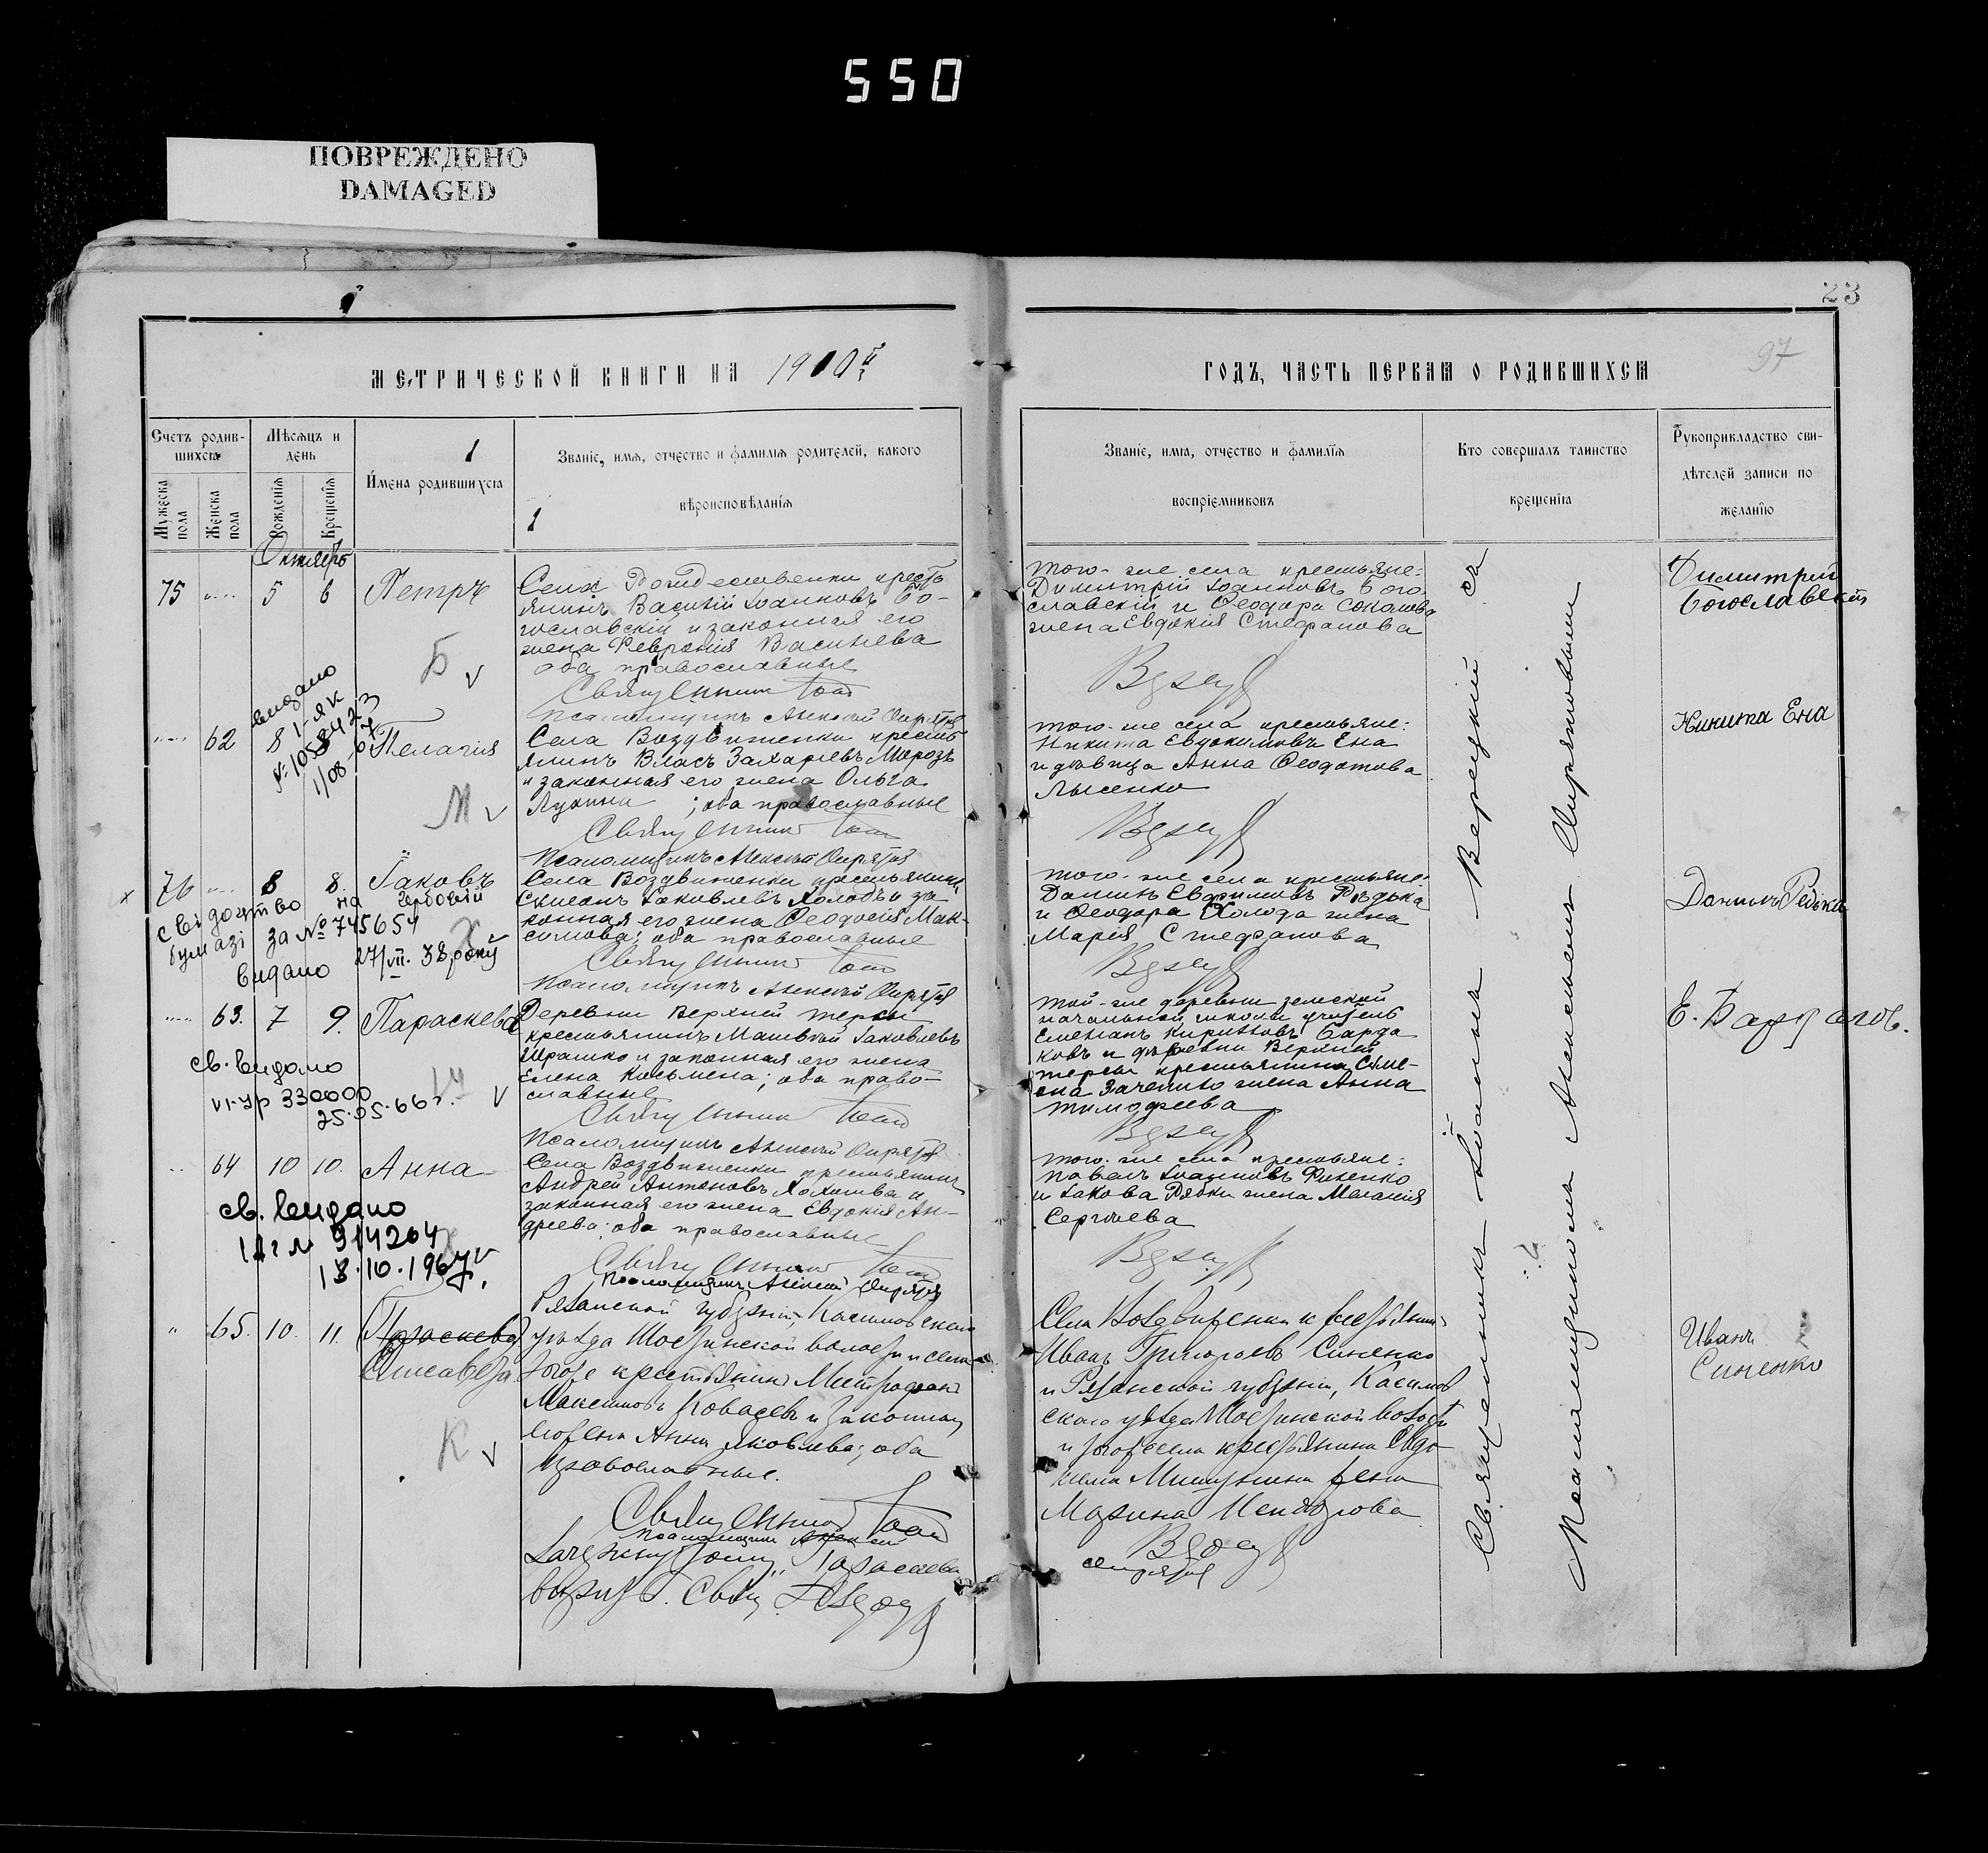 550
ПОВРЕЖДЕНО
DAMAGED
23
97
МЕТРИЧЕСКОЙ КНИГИ НА 1910й
ГОДЪ, ЧАСТЬ ПЕРВАЯ О РОДИВШИХСЯ
Счетъ родив-
шихся
Мужеска пола
Женска пола
Мѣсяцъ и
день
Рожденія
Крещенія
Имена родившихся
Званіе, имя, отчество и фамилія родителей, какого
вѣроисповѣданія
Званіе, имя, отчество и фамилія
воспріемниковъ
Кто совершалъ таинство
крещенія
Рукоприкладство сви-
дѣтелей записи по
желанію
1
1
Октябрь
75 5 6 Петръ
Села Рождественки кресть
янинъ Василій Іоанновъ Бо-
гославскій и законная его
жена Феврония Васильева
оба православные
Священникъ
Псаломщикъ Алексій
Того-же села крестьяне:
Димитрій Іоанновъ Бого
славскій и Ѳеодора Соколова
жена Евдокія Стефанова
Димитрий
Богославскій
Б
видано
81-ЯК
62 8 Пелагія
Села Воздвиженки кресть
янинъ Власъ Захаріевъ Морозъ
и законная его жена Ольга
Лукина ; оба православные
Священникъ
Псаломщикъ Алексій
Того-же села крестьяне:
Никита Евдокимовъ Ена
и дѣвица Анна Ѳеодотова
Лысенко
Никита Ена
М
х 76 8 8. Іаковъ
Села Воздвиженки крестьянинъ
Симеонъ Іаковлевъ Холодъ и за
конная его жена Ѳеодосія Мак-
симова; оба православные
Священникъ
Псаломщикъ Алексій
Того-же села крестьяне:
Даніилъ Евфимовъ Рѣдька
и Ѳеодора Холода жена
Марія Стефанова
Данилъ Редька
свідоцтво на гербовій
бумазі за № 745654
видано 27/VII. 38 року
63. 7 9. Параскева
Деревни Верхній Терсы
крестьянинъ Матвѣй Іаковлевъ
Ирашко и законная его жена
Елена Косьмена; оба право-
славные
Священникъ
Псаломщикъ Алексій
Той-же деревни земской
начальной школы учитель
Емельянъ Кирилловъ Барда
ковъ и деревни Верхній
Терсы крестьянина Симе-
она Зачепило жена Анна
Тимофеева
Е. Бардаков.
св. видано
VI-УР 330000
25.05.66 г.
64 10 10. Анна
Села Воздвиженки крестьянинъ
Андрей Антоновъ Хохотва и
законная его жена Евдокія Ан-
дреева; оба православные
Священникъ
Псаломщикъ Алексій
Того-же села крестьяне:
Павелъ Іоанновъ Риженко
и Іакова Рябки жена Меланія
Сергіева
св. видано
914204
13.10.1967 г.
65. 10. 11. Параскева
Елисавета
Рязанской губерніи, Касимовскаго
уѣзда Шостьинской волости и села
тогоже крестьянинъ Митрофанъ
Максимовъ Ковалевъ и законная
его жена Анна Яковлева; оба
православные.
Священникъ
Псаломщикъ Алексій
Зачеркнутому "Параскева"
вѣрить. Свящ.
Села Воздвиженки крестьянинъ
Иванъ Григорьевъ Синенко
и Рязанской губерніи, Касимов
скаго уѣзда Шостьинской волости
и тогожъ села крестьянина Евдо
кима Мишункина жена
Марина
Иванъ
Синенко
К
Священникъ Іоаннъ Варецкій съ
Псаломщикомъ Алексѣемъ